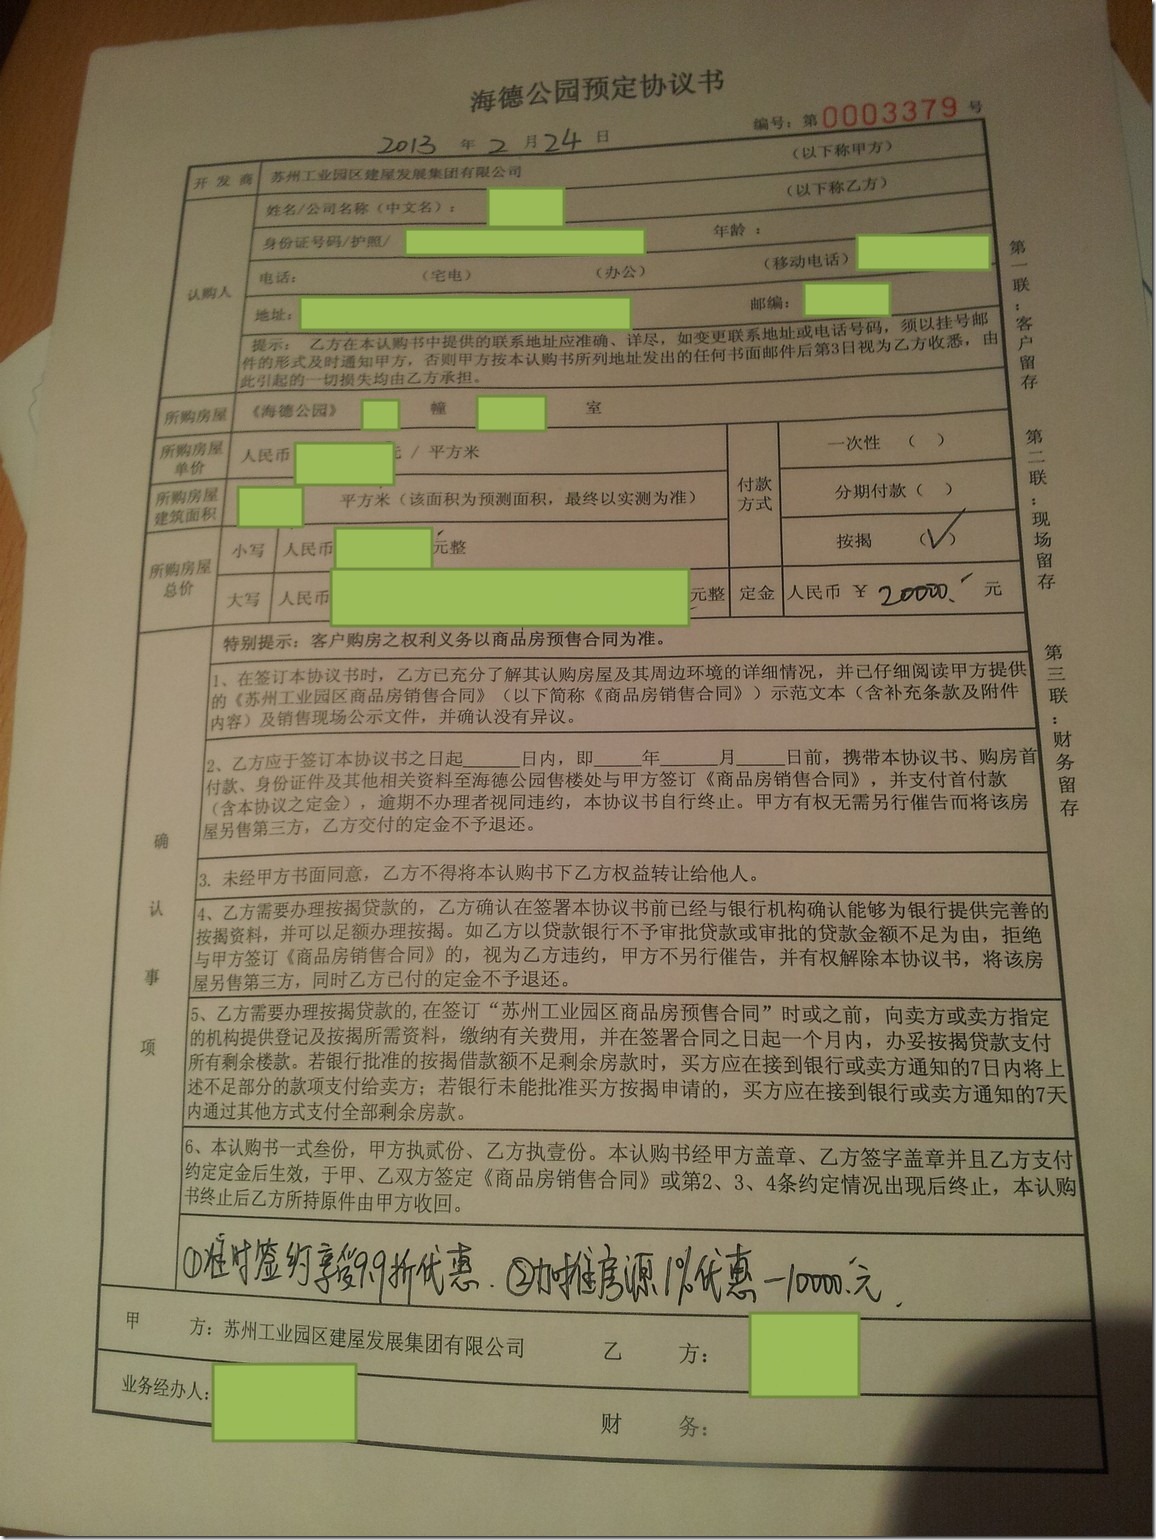 海德公园预定协议书
编号：第0003379号
2013年2月24日
开发商 苏州工业园区建屋发展集团有限公司 （以下称甲方）
认购人
姓名/公司名称（中文名）： （以下称乙方）
身份证号码/护照/ 年龄：
电话： （宅电） （办公） （移动电话）
地址： 邮编：
提示： 乙方在本认购书中提供的联系地址应准确、详尽，如变更联系地址或电话号码，须以挂号邮
件的形式及时通知甲方，否则甲方按本认购书所列地址发出的任何书面邮件后第3日视为乙方收悉，由
此引起的一切损失均由乙方承担。
所购房屋 《海德公园》 幢 室
所购房屋
单价
人民币 元 / 平方米
所购房屋
建筑面积
平方米（该面积为预测面积，最终以实测为准）
所购房屋
总价
小写 人民币 元整
大写 人民币 元整
付款
方式
一次性 （ ）
分期付款（ ）
按揭 （✓）
定金 人民币 ￥ 20000. 元
确认事项
特别提示：客户购房之权利义务以商品房预售合同为准。
1、在签订本协议书时，乙方已充分了解其认购房屋及其周边环境的详细情况，并已仔细阅读甲方提供
的《苏州工业园区商品房销售合同》（以下简称《商品房销售合同》）示范文本（含补充条款及附件
内容）及销售现场公示文件，并确认没有异议。
2、乙方应于签订本协议书之日起______日内，即_____年______月_____日前，携带本协议书、购房首
付款、身份证件及其他相关资料至海德公园售楼处与甲方签订《商品房销售合同》，并支付首付款
（含本协议之定金），逾期不办理者视同违约，本协议书自行终止。甲方有权无需另行催告而将该房
屋另售第三方，乙方交付的定金不予退还。
3. 未经甲方书面同意，乙方不得将本认购书下乙方权益转让给他人。
4、乙方需要办理按揭贷款的，乙方确认在签署本协议书前已经与银行机构确认能够为银行提供完善的
按揭资料，并可以足额办理按揭。如乙方以贷款银行不予审批贷款或审批的贷款金额不足为由，拒绝
与甲方签订《商品房销售合同》的，视为乙方违约，甲方不另行催告，并有权解除本协议书，将该房
屋另售第三方，同时乙方已付的定金不予退还。
5、乙方需要办理按揭贷款的,在签订“苏州工业园区商品房预售合同”时或之前，向卖方或卖方指定
的机构提供登记及按揭所需资料，缴纳有关费用，并在签署合同之日起一个月内，办妥按揭贷款支付
所有剩余楼款。若银行批准的按揭借款额不足剩余房款时，买方应在接到银行或卖方通知的7日内将上
述不足部分的款项支付给卖方；若银行未能批准买方按揭申请的，买方应在接到银行或卖方通知的7天
内通过其他方式支付全部剩余房款。
6、本认购书一式叁份，甲方执贰份、乙方执壹份。本认购书经甲方盖章、乙方签字盖章并且乙方支付
约定定金后生效，于甲、乙双方签定《商品房销售合同》或第2、3、4条约定情况出现后终止，本认购
书终止后乙方所持原件由甲方收回。
①准时签约享受9.9折优惠. ②加推房源1%优惠 -10000.元.
甲 方：苏州工业园区建屋发展集团有限公司 乙 方：
业务经办人： 财 务：
第一联：客户留存
第二联：现场留存
第三联：财务留存